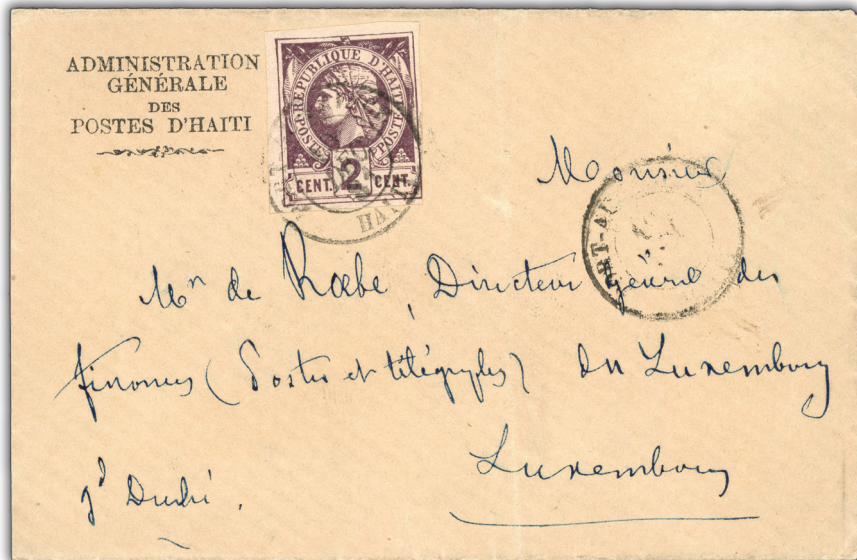 ADMINISTRATION
GÉNÉRALE
DES
POSTES D'HAITI
REPUBLIQUE D'HAITI
POSTES POSTES
CENT. 2 CENT.
HAITI
Monsieur
Mr de Roebe, Directeur général des
finances (Postes et télégraphes) du Luxembourg
Luxembourg
gd Duché.